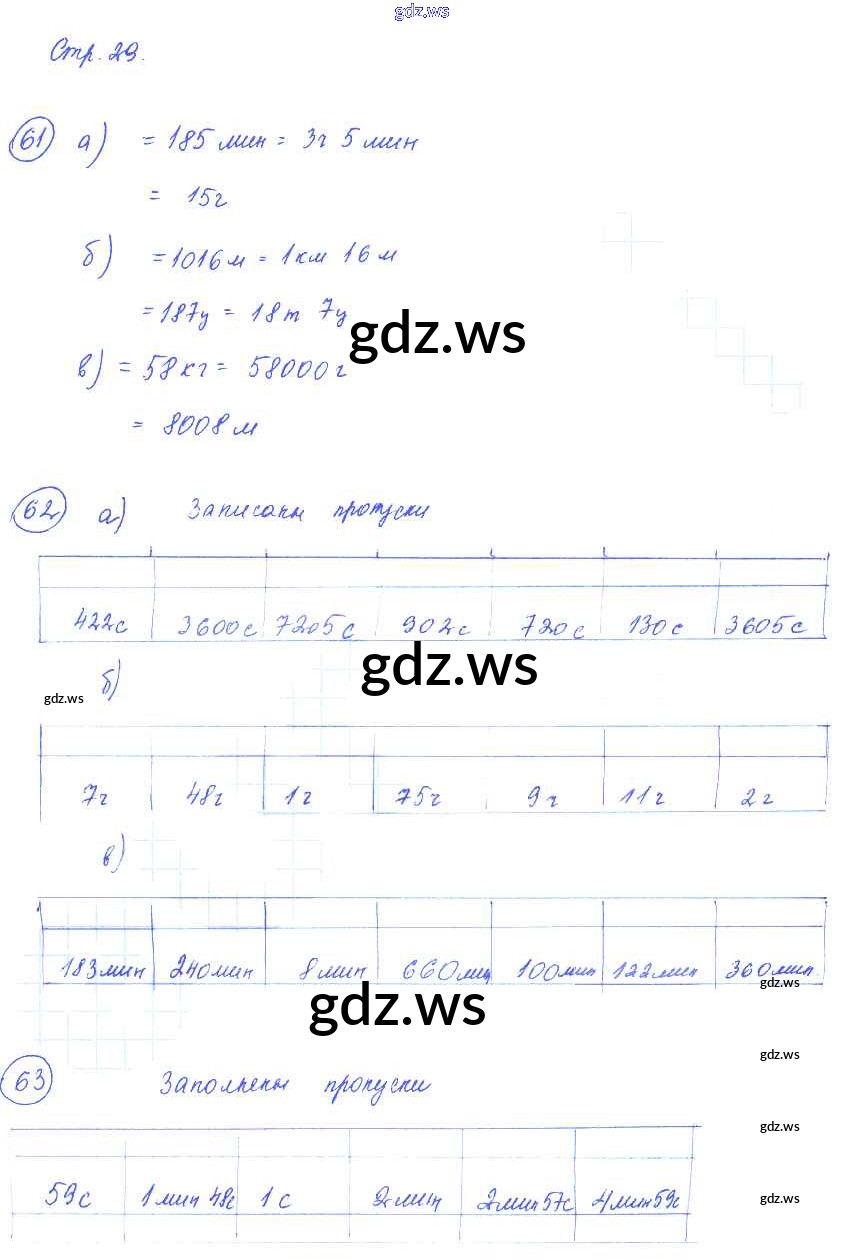 gdz.ws
Стр. 29.
61 а) = 185 мин = 3ч 5 мин
= 15ч
б) = 1016 м = 1 км 16 м
= 187ц = 18т 7ц
gdz.ws
в) = 58 кг = 58000 г
= 8008 м
62 а) Записаны пропуски
422с 3600с 7205с 902с 720с 130с 3605с
gdz.ws
б)
gdz.ws
7ч 48ч 1ч 75ч 9ч 11ч 2ч
в)
183 мин 240 мин 8 мин 660 мин 100 мин 122 мин 360 мин.
gdz.ws
gdz.ws
gdz.ws
63 Заполнены пропуски
gdz.ws
59с 1 мин 48с 1с 2 мин 2 мин 57с 4 мин 59с
gdz.ws